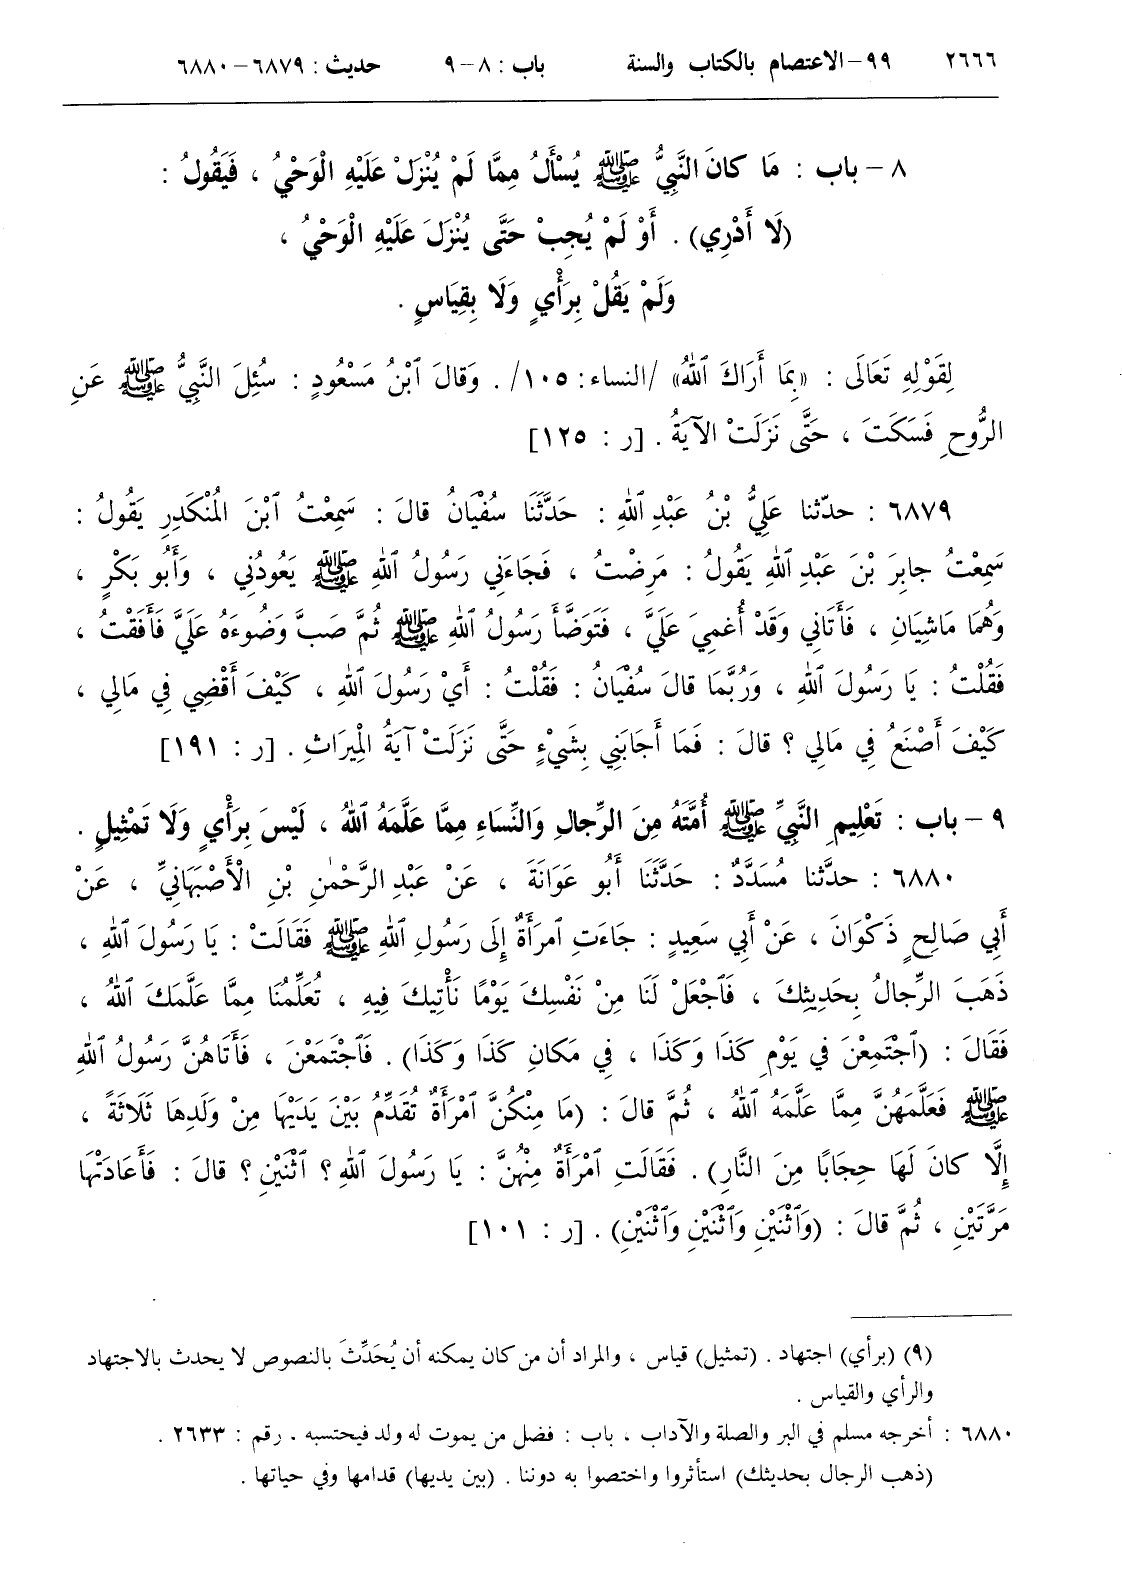 ٢٦٦٦ ٩٩ – الاعتصام بالكتاب والسنة باب : ٨ – ٩ حديث : ٦٨٧٩ – ٦٨٨٠
٨ – باب : مَا كانَ النَّبِيُّ ﷺ يُسْأَلُ مِمَّا لَمْ يُنْزَلْ عَلَيْهِ الْوَحْيُ ، فَيَقُولُ :
(لَا أَدْرِي) . أَوْ لَمْ يُجِبْ حَتَّى يُنْزَلَ عَلَيْهِ الْوَحْيُ ،
وَلَمْ يَقُلْ بِرَأْيٍ وَلَا بِقِيَاسٍ .
لِقَوْلِهِ تَعَالَى : «بِمَا أَرَاكَ ٱللهُ» /النساء: ١٠٥/ . وَقالَ ٱبْنُ مَسْعُودٍ : سُئِلَ النَّبِيُّ ﷺ عَنِ
الرُّوحِ فَسَكَتَ ، حَتَّى نَزَلَتْ الآيَةُ . [ر : ١٢٥]
٦٨٧٩ : حدّثنا عَلِيُّ بْنُ عَبْدِ ٱللهِ : حَدَّثَنَا سُفْيَانُ قالَ : سَمِعْتُ ٱبْنَ المُنْكَدِرِ يَقُولُ :
سَمِعْتُ جابِرَ بْنَ عَبْدِ ٱللهِ يَقُولُ : مَرِضْتُ ، فَجَاءَنِي رَسُولُ ٱللهِ ﷺ يَعُودُنِي ، وَأَبُو بَكْرٍ ،
وَهُمَا مَاشِيَانِ ، فَأَتَانِي وَقَدْ أُغمِيَ عَلَيَّ ، فَتَوَضَّأَ رَسُولُ ٱللهِ ﷺ ثُمَّ صَبَّ وَضُوءَهُ عَلَيَّ فَأَفَقْتُ ،
فَقُلْتُ : يَا رَسُولَ ٱللهِ ، وَرُبَّمَا قالَ سُفْيَانُ : فَقُلْتُ : أَيْ رَسُولَ ٱللهِ ، كَيْفَ أَقْضِي فِي مَالِي ،
كَيْفَ أَصْنَعُ فِي مَالِي ؟ قالَ : فَمَا أَجابَنِي بِشَيْءٍ حَتَّى نَزَلَتْ آيَةُ الْمِيرَاثِ . [ر : ١٩١]
٩ – باب : تَعْلِيمِ النَّبِيِّ ﷺ أُمَّتَهُ مِنَ الرِّجالِ وَالنِّسَاءِ مِمَّا عَلَّمَهُ ٱللهُ ، لَيْسَ بِرَأْيٍ وَلَا تَمْثِيلٍ .
٦٨٨٠ : حدَّثنا مُسَدَّدٌ : حَدَّثَنَا أَبُو عَوَانَةَ ، عَنْ عَبْدِ الرَّحْمٰنِ بْنِ الْأَصْبَهَانِيِّ ، عَنْ
أَبِي صَالِحٍ ذَكْوَانَ ، عَنْ أَبِي سَعِيدٍ : جَاءَتِ ٱمرَأَةٌ إِلَى رَسُولِ ٱللهِ ﷺ فَقَالَتْ : يَا رَسُولَ ٱللهِ ،
ذَهَبَ الرِّجالُ بِحَدِيثِكَ ، فَٱجْعَلْ لَنَا مِنْ نَفْسِكَ يَوْمًا نَأْتِيكَ فِيهِ ، تُعَلِّمُنَا مِمَّا عَلَّمَكَ ٱللهُ ،
فَقَالَ : (ٱجْتَمِعْنَ فِي يَوْمِ كَذَا وَكَذَا ، فِي مَكانِ كَذَا وَكَذَا) . فَٱجْتَمَعْنَ ، فَأَتَاهُنَّ رَسُولُ ٱللهِ
ﷺ فَعَلَّمَهُنَّ مِمَّا عَلَّمَهُ ٱللهُ ، ثُمَّ قالَ : (مَا مِنْكُنَّ ٱمْرَأَةٌ تُقَدِّمُ بَيْنَ يَدَيْهَا مِنْ وَلَدِهَا ثَلَاثَةً ،
إِلَّا كانَ لَهَا حِجَابًا مِنَ النَّارِ) . فَقَالَتِ ٱمْرَأَةٌ مِنْهُنَّ : يَا رَسُولَ ٱللهِ ؟ ٱثْنَيْنِ ؟ قالَ : فَأَعَادَتْهَا
مَرَّتَيْنِ ، ثُمَّ قالَ : (وَٱثْنَيْنِ وَٱثْنَيْنِ وَٱثْنَيْنِ) . [ر : ١٠١]
(٩) (برأي) اجتهاد . (تمثيل) قياس ، والمراد أن من كان يمكنه أن يُحَدِّثَ بالنصوص لا يحدث بالاجتهاد
والرأي والقياس .
٦٨٨٠ : أخرجه مسلم في البر والصلة والآداب ، باب : فضل من يموت له ولد فيحتسبه ، رقم : ٢٦٣٣ .
(ذهب الرجال بحديثك) استأثروا واختصوا به دوننا . (بين يديها) قدامها وفي حياتها .